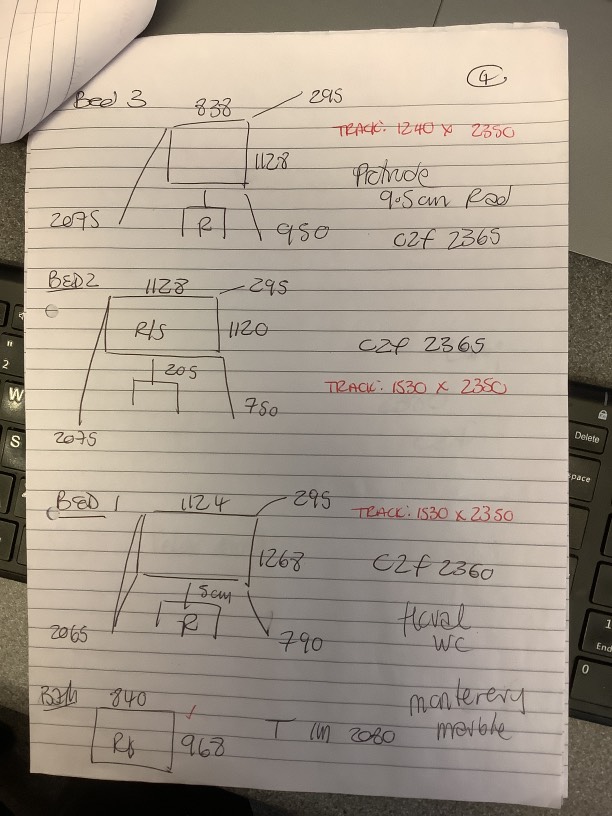 4
Bed 3 838 295
TRACK: 1240 x 2350
1128
Protrude
9.5cm Rad
2075 R 950 C2f 2365
BED 2 1128 295
R/S 1120 C2f 2365
205
TRACK: 1530 x 2350
750
2075
BED 1 1124 295
TRACK: 1530 x 2350
1268 C2f 2360
5cm
R
2065 790
WC
Bath 840
monterery
marble
968 T 2080